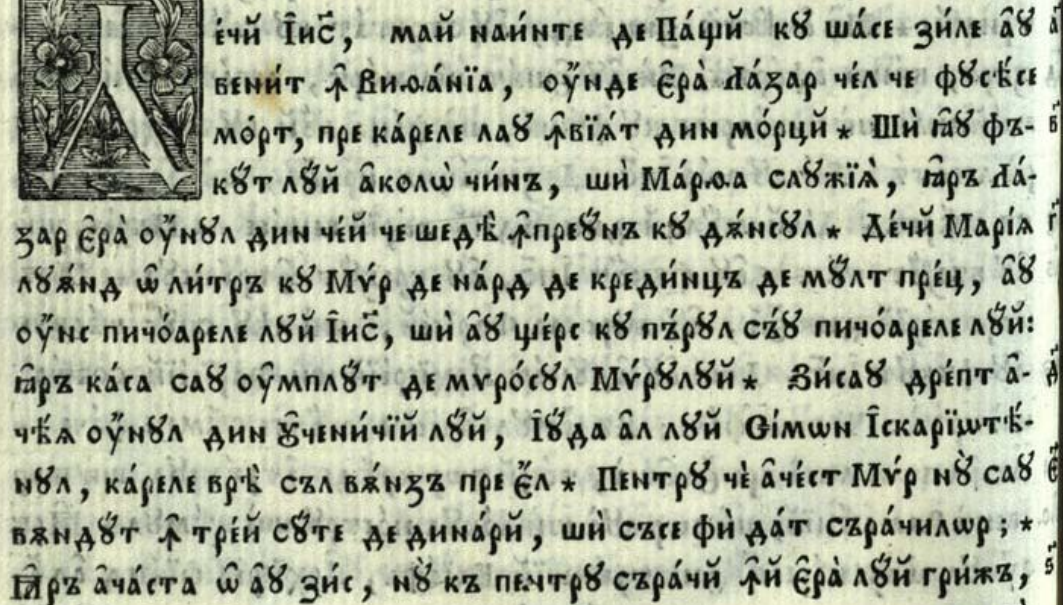 Дечй І҆и҃с, май наи́нте де Па́щй кꙋ ша́се зи́ле а҆ꙋ
вени́т ꙟ҆ Виѳа́нїа, ѹ҆́нде є҆ра̀ Ла́ꙁар че́л че фꙋсѣ́се
мо́рт, пре ка́реле лаꙋ ꙟ҆вїѧ́т дин мо́рцй * Шѝ ꙗ҆ꙋ фъ-
кꙋ́т лꙋ́й а҆колѡ̀ чи́нъ, шѝ Ма́рѳа слꙋжїѧ̀, ꙗ҆ръ Ла́-
ꙁар є҆ра̀ ѹ҆́нꙋл дин че́й че шедѣ̀ ꙟ҆преꙋ́нъ кꙋ дѫ́нсꙋл * Де́чй Марі́ѧ
лꙋѫ́нд ѡ҆ ли́тръ кꙋ Мѵ́р де на́рд де креди́нцъ де мꙋ́лт пре́ц, а҆ꙋ
ѹ҆́нс пичо́ареле лꙋ́й І҆и҃с, шѝ а҆ꙋ ще́рс кꙋ пъ́рꙋл съ́ꙋ пичо́ареле лꙋ́й:
ꙗ҆ръ ка́са саꙋ ѹ҆мплꙋ́т де мѵро́сꙋл Мѵ́рꙋлꙋй * Зи́саꙋ дре́пт а҆-
чѣ́ѧ ѹ҆́нꙋл дин ꙋ҆чени́чїй лꙋ́й, І҆ꙋ́да а҆л лꙋ́й Сі́мѡн І҆скарїѡтѣ́-
нꙋл, ка́реле врѣ̀ съл вѫ́нꙁъ пре є҆́л * Пентрꙋ чѐ а҆че́ст Мѵ́р нꙋ̀ саꙋ
вѫндꙋ́т ꙟ҆ тре́й сꙋ́те де дина́рй, шѝ съсе фѝ да́т съра́чилѡр; *
Ꙗ҆ръ а҆ча́ста ѡ҆ а҆ꙋ зи́с, нꙋ̀ къ пе́нтрꙋ съра́чй ꙟ҆й є҆ра̀ лꙋ́й гри́жъ,